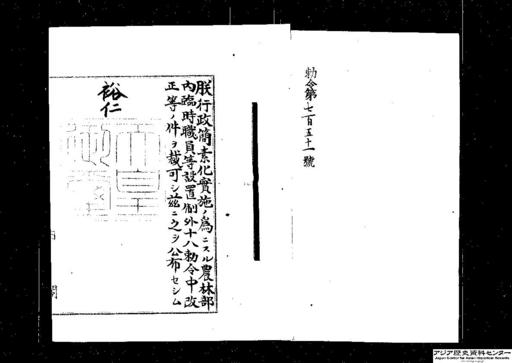 勅令第七百五十一號
朕行政簡素化實施ノ爲ニスル農林部
內臨時職員等設置制外十八勅令中改
正等ノ件ヲ裁可シ茲ニ之ヲ公布セシム
裕仁
天皇御璽
アジア歴史資料センター
Japan Center for Asian Historical Records